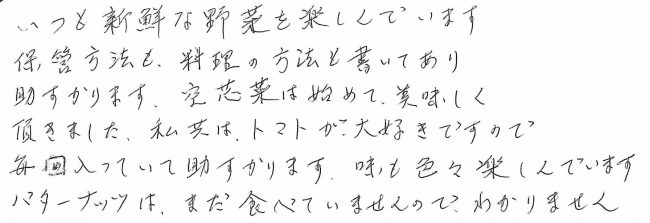 いつも新鮮な野菜を楽しんでいます
保管方法も、料理の方法も書いてあり
助すかります、空芯菜は始めて、美味しく
頂きました、私共は、トマトが、大好きですので
毎回入っていて助すかります、味も色々楽しんでいます
バターナッツは、まだ食べていませんので、わかりません